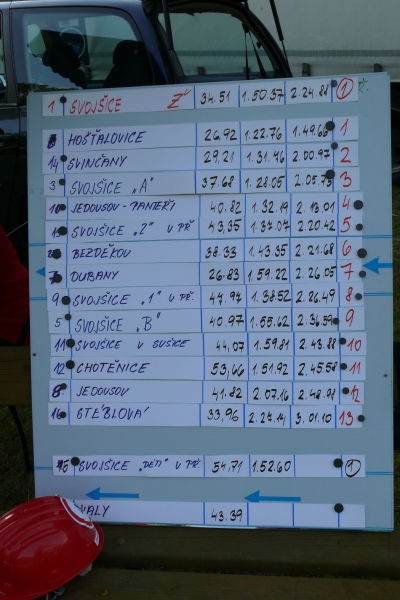 1 SVOJŠICE Ž 34.51 1.50.37 2.24.88 1
HOŠŤALOVICE 26.92 1.22.76 1.49.68 1
14 SVINČANY 29,21 1.31.46 2.00.97 2
3 SVOJŠICE „A" 37.68 1.28.05 2.05.73 3
10 JEDOUSOV - PANTEŘI 40.82 1.32.19 2.13.01 4
SVOJŠICE „2" U PŘ 43,35 1.37.07 2.20.42 5
BEZDĚKOV 38.33 1.43.35 2.21.68 6
DUBANY 26.83 1.59.22 2.26.05 7
9 SVOJŠICE „1" U PŘ. 47.97 1.38.52 2.26.49 8
5 SVOJŠICE „B" 40.97 1.55.62 2.36.59 9
11 SVOJŠICE U SUŠICE 44,07 1.59.81 2.43.88 10
12 CHOTĚNICE 53,66 1.51.92 2.45.58 11
8 JEDOUSOV 41.82 2.07.16 2.48.98 12
16 STÉBLOVÁ 33,96 2.27.14 3.01.10 13
SVOJŠICE „DĚTI" U PŘ. 54,71 1.52.60 1
VALY 43.39